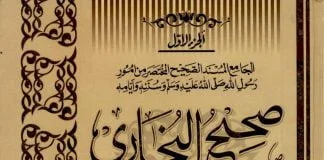 الجزء الأول
الجامع المسند الصحيح المختصر من أمور
رسول الله صلى الله عليه وسلم وسننه وأيامه
صحيح البخاري